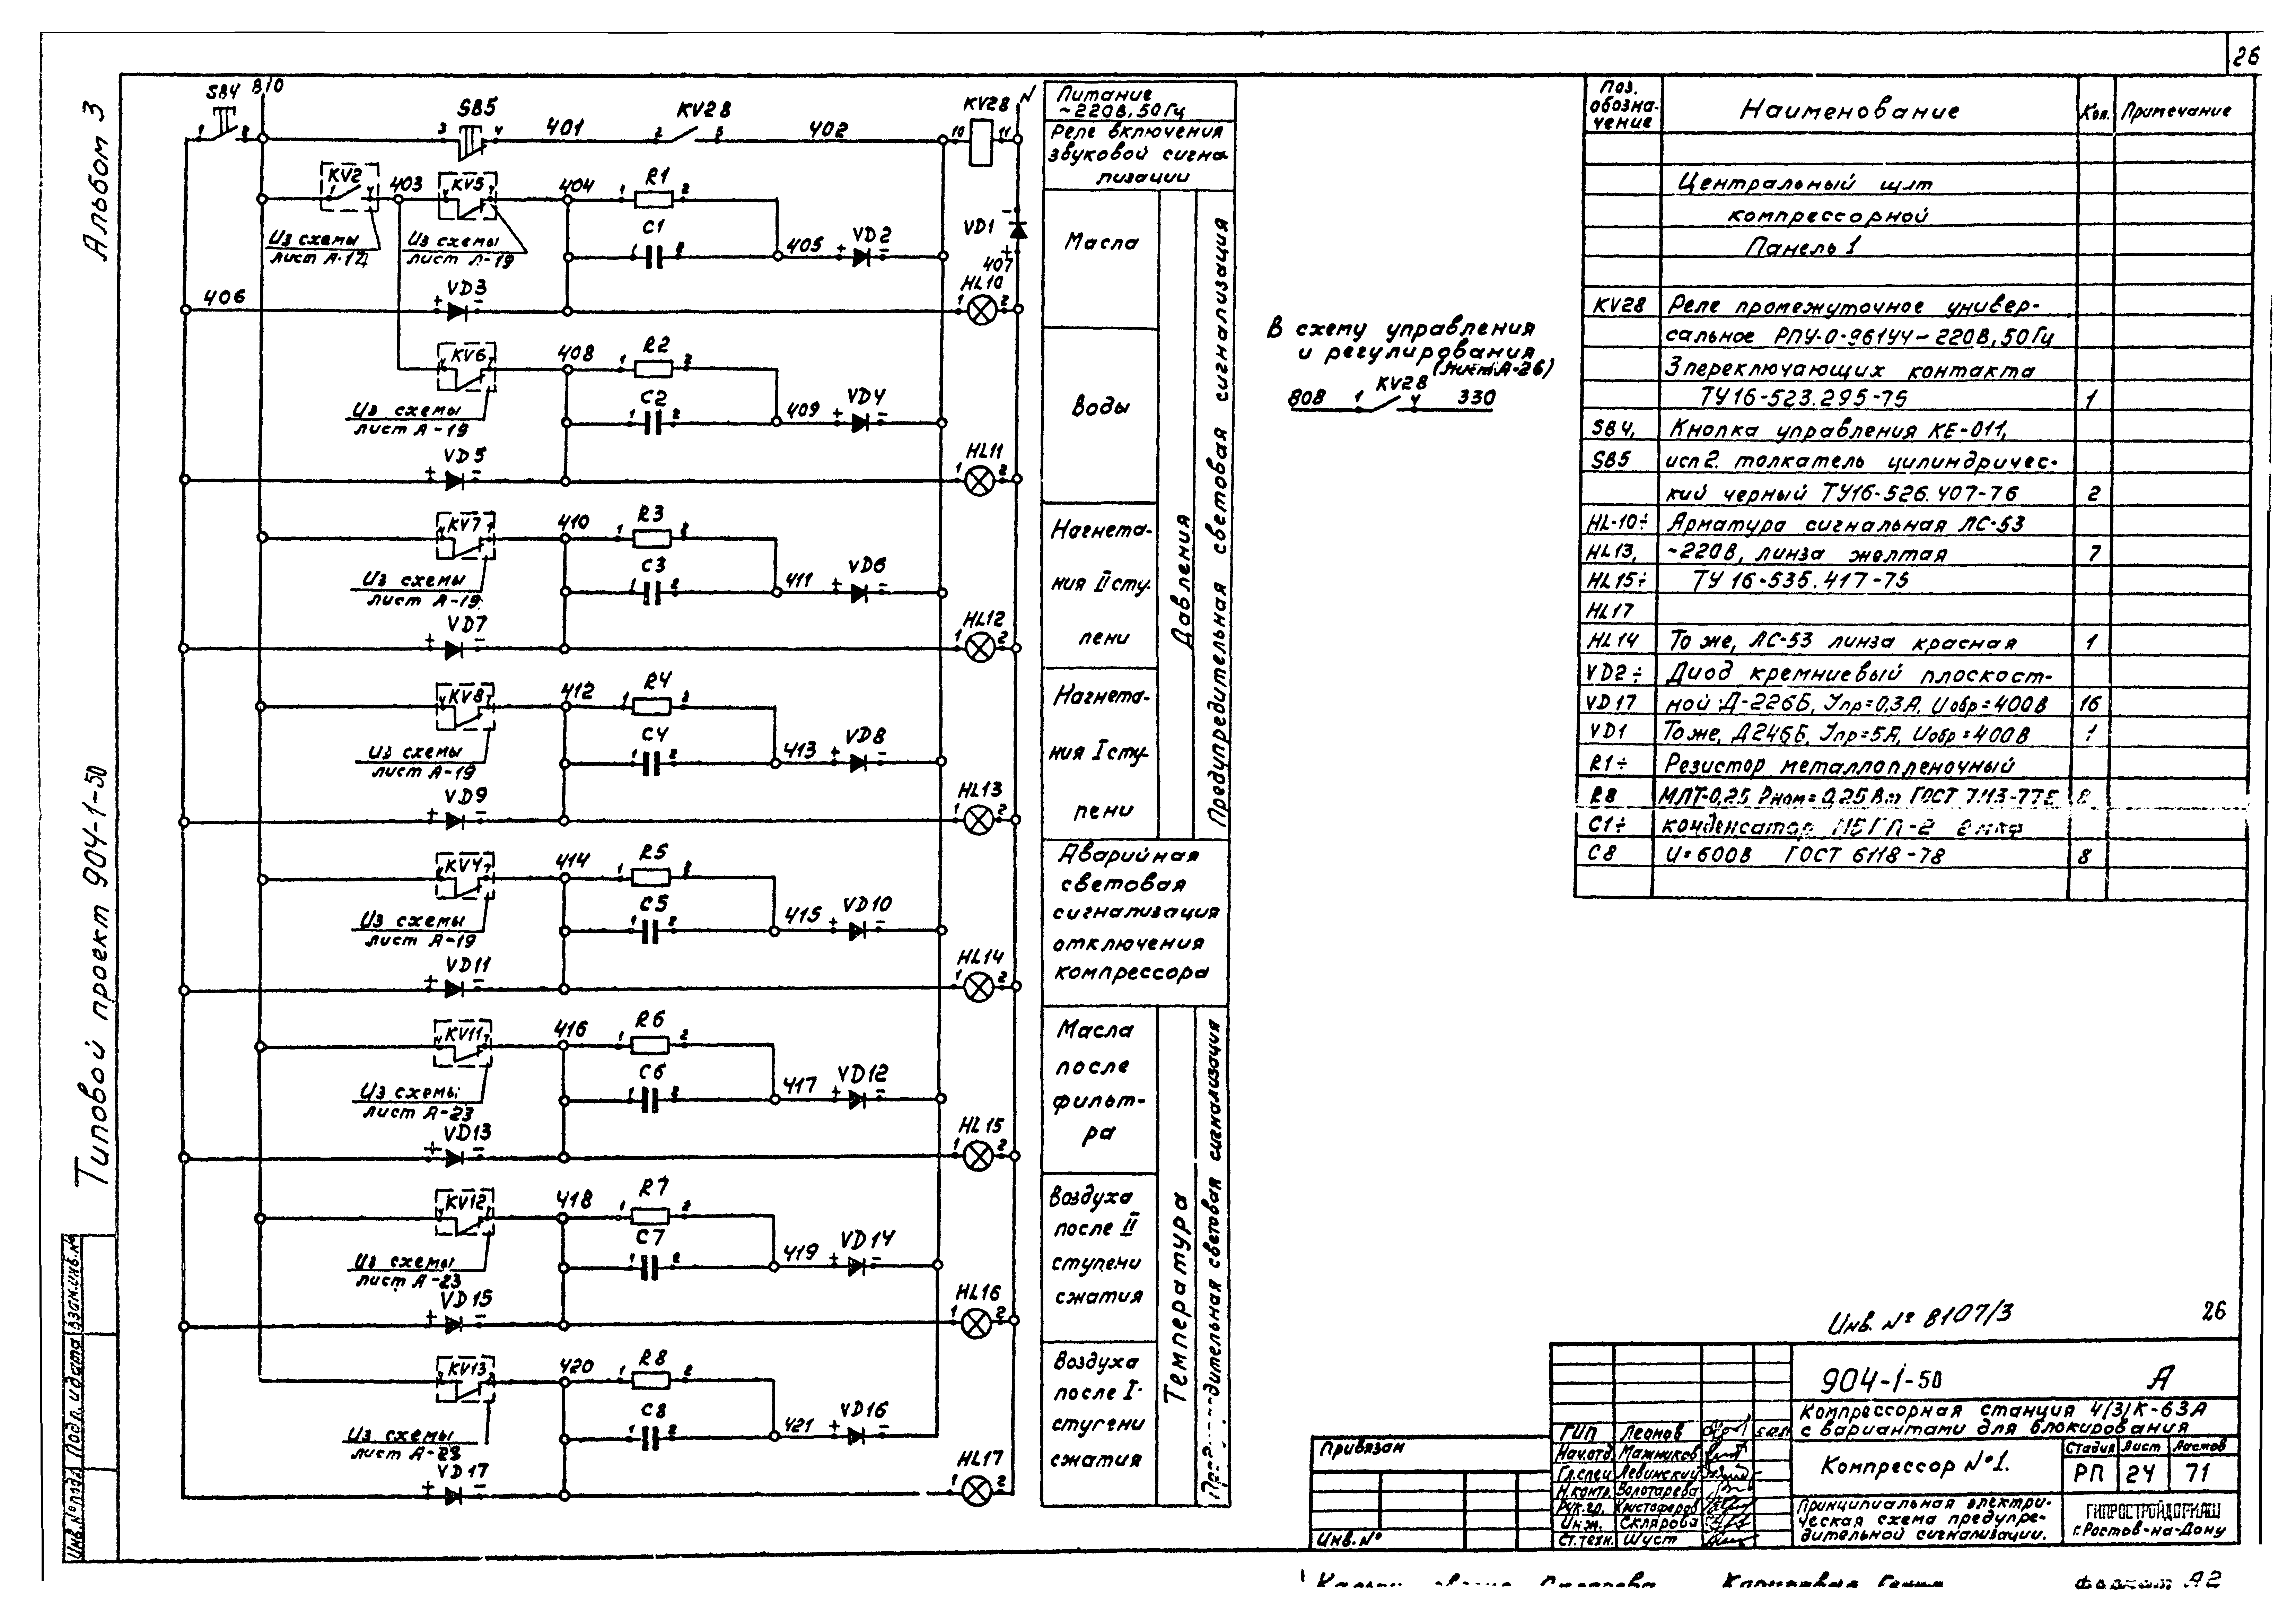 26
Альбом 3
Типовой проект 904-1-50
Взам.инв.№
Подп. и дата
Инв.№ подл.
SB4
810
1 2
3 SB5 4
401
2 KV28 5
402
10 KV28 11
N
KV2
1 4
403
4 KV5 7
404
1 R1 2
Из схемы
лист А-17
Из схемы
лист А-19
1 C1 2
405
+ VD2 -
VD1
-
+
407
406
+ VD3 -
1 HL10 2
KV6
408
1 R2 2
Из схемы
лист А-19
1 C2 2
409
+ VD4 -
+ VD5 -
1 HL11 2
4 KV7 7
410
1 R3 2
Из схемы
лист А-19
1 C3 2
411
+ VD6 -
+ VD7 -
1 HL12 2
4 KV8 7
412
1 R4 2
Из схемы
лист А-19
1 C4 2
413
+ VD8 -
+ VD9 -
1 HL13 2
4 KV4 7
414
1 R5 2
Из схемы
лист А-19
1 C5 2
415
+ VD10 -
+ VD11 -
1 HL14 2
4 KV11 7
416
1 R6 2
Из схемы
лист А-23
1 C6 2
417
+ VD12 -
+ VD13 -
1 HL15 2
KV12
418
1 R7 2
Из схемы
лист А-23
1 C7 2
419
+ VD14 -
+ VD15 -
1 HL16 2
KV13
420
1 R8 2
Из схемы
лист А-23
1 C8 2
421
+ VD16 -
+ VD17 -
1 HL17 2
Питание
~220В, 50Гц
Реле включения
звуковой сигна-
лизации
Масла
Воды
Нагнета-
ния II сту-
пени
Нагнета-
ния I сту-
пени
Давления
Предупредительная световая сигнализация
Аварийная
световая
сигнализация
отключения
компрессора
Масла
после
фильт-
ра
Воздуха
после II
ступени
сжатия
Воздуха
после I
ступени
сжатия
Температура
дительная световая сигнализация
В схему управления
и регулирования
(лист А-26)
808 1 KV28 4 330
Поз. обозна-чение Наименование Кол. Примечание
Центральный щит
компрессорной
Панель 1
KV28 Реле промежуточное универ-
сальное РПУ-0-961У4~220В, 50Гц
3 переключающих контакта
ТУ16-523.295-75 1
SB4, Кнопка управления КЕ-011,
SB5 исп 2. толкатель цилиндричес-
кий черный ТУ16-526.407-76 2
HL-10÷ Арматура сигнальная ЛС-53
HL13, ~220В, линза желтая 7
HL15÷ ТУ 16-535.417-75
HL17
HL14 То же, ЛС-53 линза красная 1
VD2÷ Диод кремниевый плоскост-
VD17 ной Д-226Б, Iпр=0,3А, Uобр=400В 16
VD1 То же, Д246Б, Iпр=5А, Uобр=400В 1
R1÷ Резистор металлопленочный
R8 МЛТ-0,25 Рном=0,25Вт ГОСТ 7113-77Е 8
C1÷ конденсатор МБГП-2 2мкф
C8 U=600В ГОСТ 6118-78 8
Инв. № 8107/3
26
904-1-50 А
Компрессорная станция 4/3/К-63А
с вариантами для блокирования
Компрессор №1.
Стадия Лист Листов
РП 24 71
Принципиальная электри-
ческая схема предупре-
дительной сигнализации.
ГИПРОСТРОЙДОРМАШ
г. Ростов-на-Дону
ГИП Леонов
Нач.отд. Мажников
Гл.спец. Левинский
Н.контр. Золотарева
Рук.гр. Христофоров
Инж. Склярова
Ст.техн. Шуст
Привязан
Инв.№
Формат А2